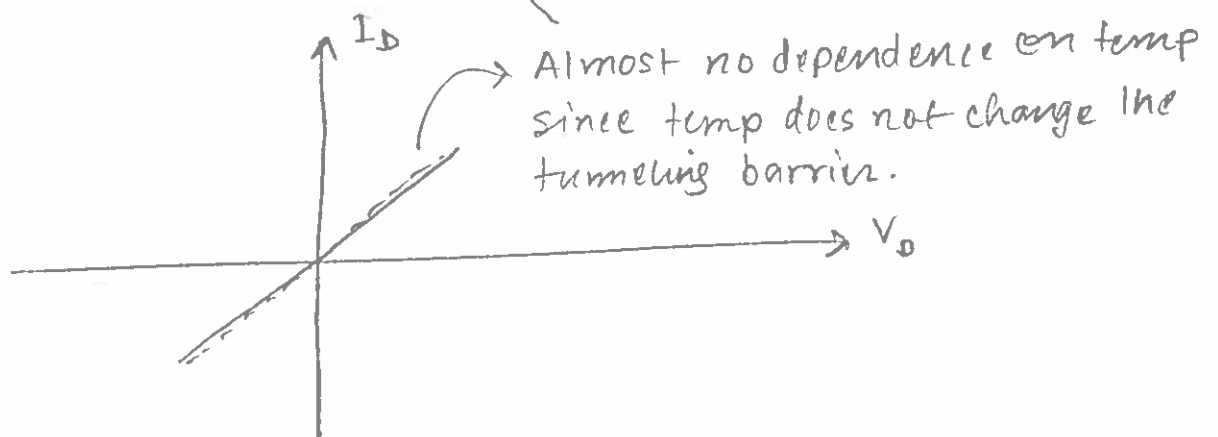 I_D
Almost no dependence on temp
since temp does not change the
tunneling barrier.
V_D